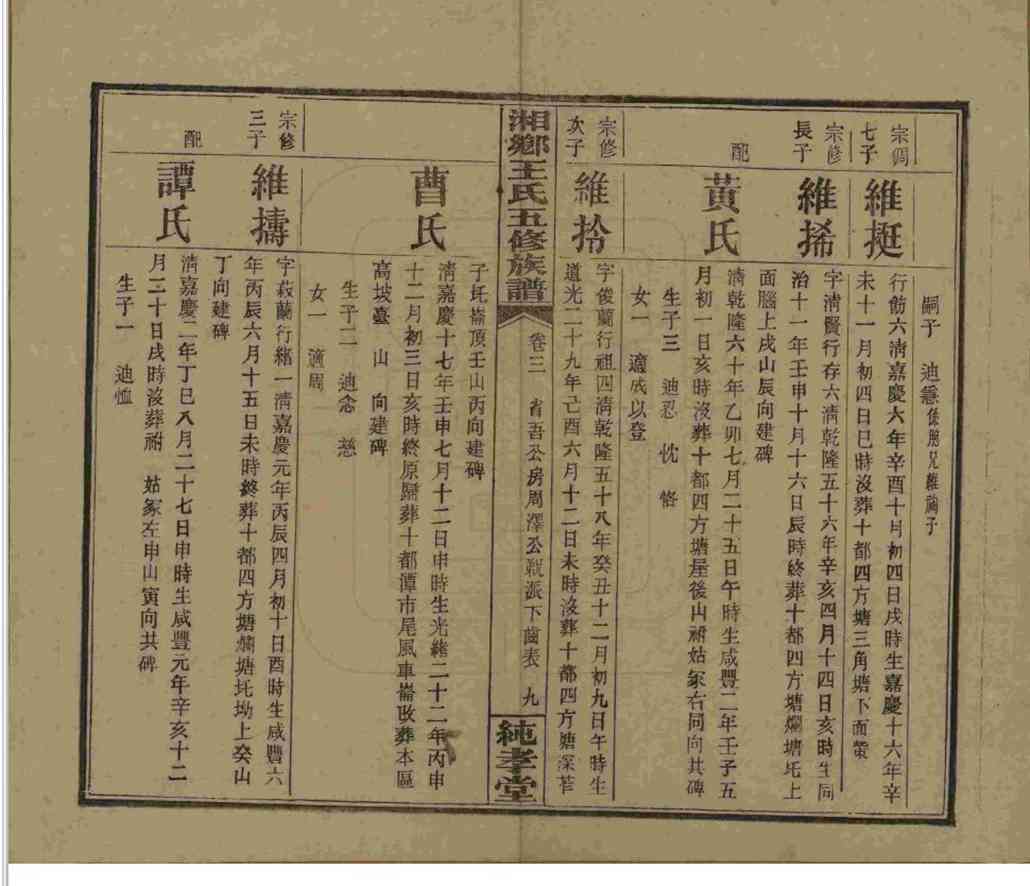 嗣子 迪 係胞兄維 子
宗調
七子
維挺
行
六清嘉慶六年辛酉十月初四日戌時生嘉慶十六年辛
未十一月初四日巳時沒葬十都四方塘三角塘下面塋
宗修
長子
維㧛
字清賢行存六清乾隆五十六年辛亥四月十四日亥時生同
治十一年壬申十月十六日辰時終葬十都四方塘爛塘坵上
面腦上戌山辰向建碑
配
黃氏
清乾隆六十年乙卯七月二十五日午時生咸豐二年壬子五
月初一日亥時沒葬十都四方塘屋後山祔姑冢右同向共碑
生子三 迪忍 忱 恪
女一 適成以登
宗修
次子
維拎
字俊蘭行祖四清乾隆五十八年癸丑十二月初九日午時生
道光二十九年己酉六月十二日未時沒葬十都四方塘深
湘鄉王氏五修族譜
卷三 省吾公房周澤公 派下齒表 九
純孝堂
子坵崙頂壬山丙向建碑
曹氏
清嘉慶十七年壬申七月十二日申時生光緒二十二年丙申
十二月初三日亥時終原歸葬十都潭市尾風車崙改葬本區
高坡臺 山 向建碑
生子二 迪念 慈
女一 適周
宗修
三子
維擣
字菽蘭行緒一清嘉慶元年丙辰四月初十日酉時生咸豐六
年丙辰六月十五日未時終葬十都四方塘爛塘坵坳上癸山
丁向建碑
配
譚氏
清嘉慶二年丁巳八月二十七日申時生咸豐元年辛亥十二
月二十日戌時沒葬祔 姑冢左申山寅向共碑
生子一 迪恤